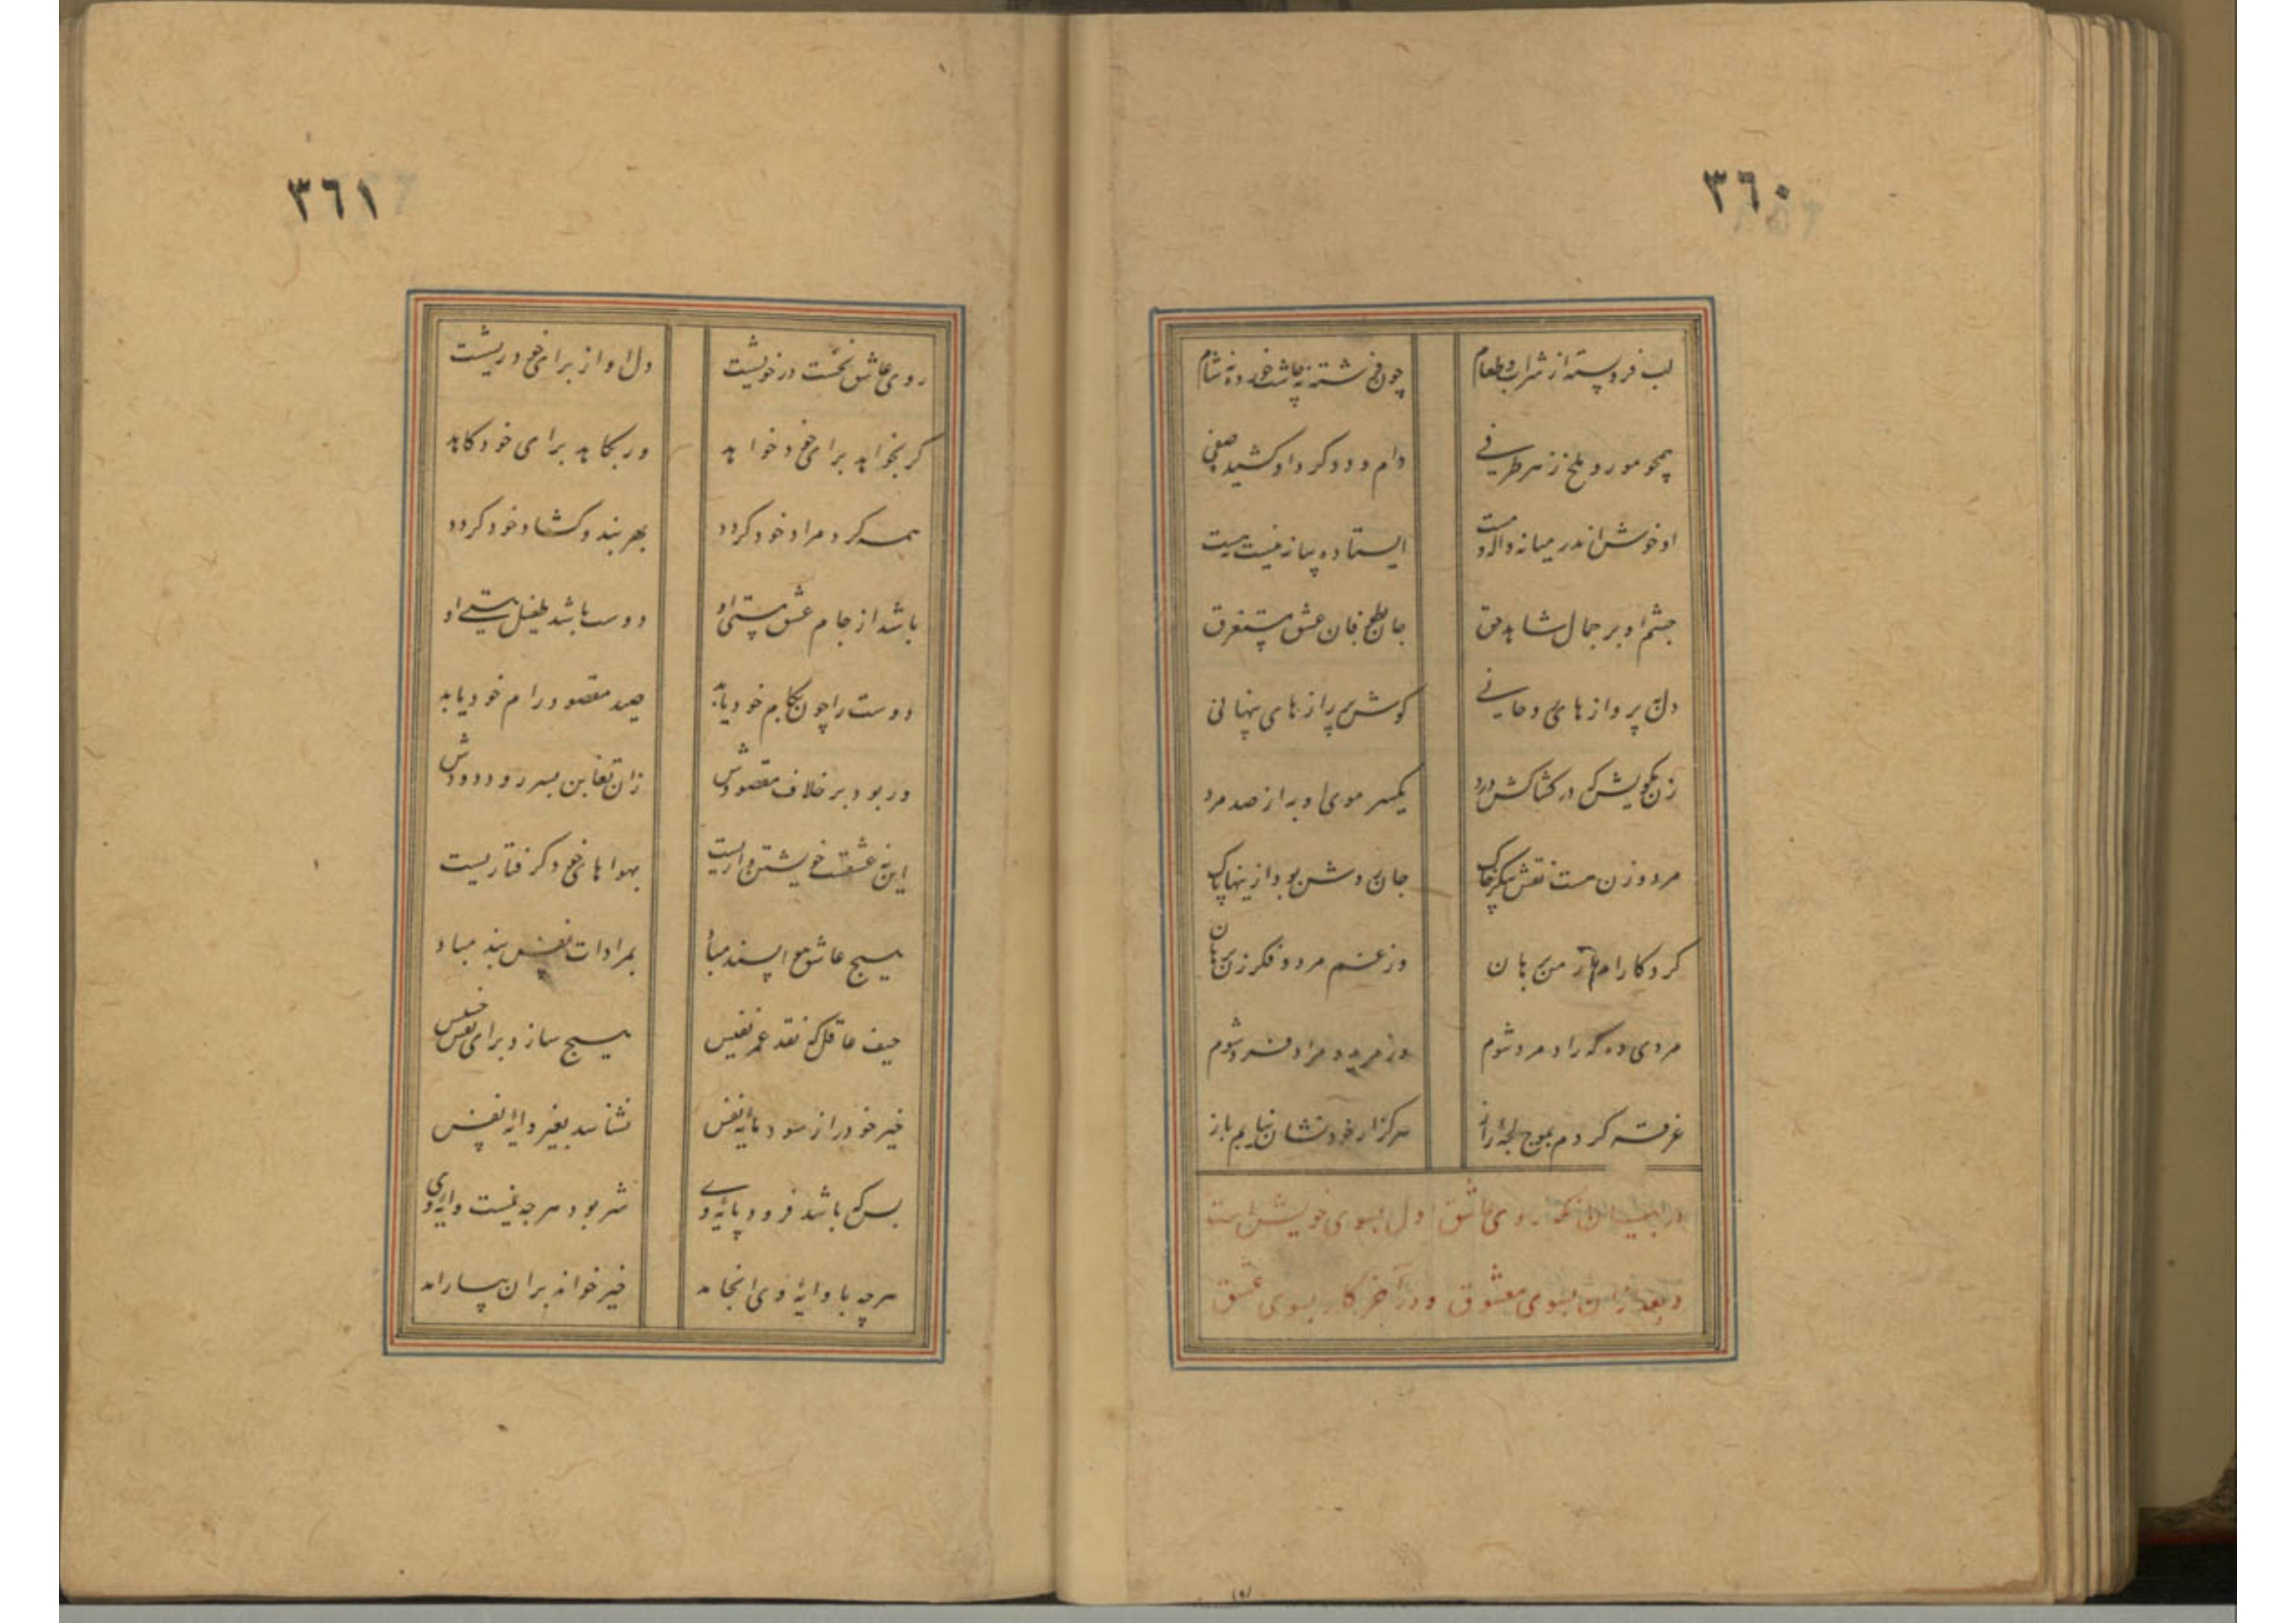 ٣٦٠
لب فروبسته از شراب و طعام چون فرشته نه چاشت خورده نه شام
همچو مور و ملخ ز هر طرفی دام و دد گرد او کشیده صفی
او خوش اندر میانه واله و مست ایستاده میانه نیست نه هست
چشم او بر جمال شاهد حق جان بطوفان عشق مستغرق
دل به پروازهای روحانی گوش پر رازهای پنهانی
زن مگویش که در کشاکش درد یکسر موی او به از صد مرد
مرد و زن هست نقش پیکر خاک جان روشن بود ازینها پاک
کردکارا مرا ز من برهان وز غم مرد و فکر زن برهان
مردی ده که راد مرد شوم وز مرید و مراد فرد شوم
غرقه گردم بموج لجه راز هرگز از خود نشان نیابم باز
در بیان آنکه روی عاشق اول بسوی خویش است
و بعد از آن بسوی معشوق و در آخر کار بسوی عشق
٣٦١
روی عاشق نخست در خویشست دل او از برای خود ریشست
گر بخواهد برای خود خواهد ور بکاهد برای خود کاهد
همه گرد مراد خود گردد بهر بند و گشاد خود گردد
باشد از جام عشق مستی او دوست باشد طفیل هستی او
دوست را چون بکام خود یابد صید مقصود رام خود یابد
ور بود بر خلاف مقصودش زان تغابن بسر رود دودش
این نه عشقست خویشتن داریست بهواهای خود گرفتاریست
هیچ عاشق هوا پسند مباد بمرادات نفس بند مباد
حیف عاقل که نقد عمر نفیس هیچ سازد برای نفس خسیس
خیر خود را ز سود مایه نفس نشناسد بغیر وایه نفس
بس که باشد فرود پایه وی شر بود هر چه نیست وایه وی
هر چه با وایه وی انجامد خیر خواند بر آن بیارامد